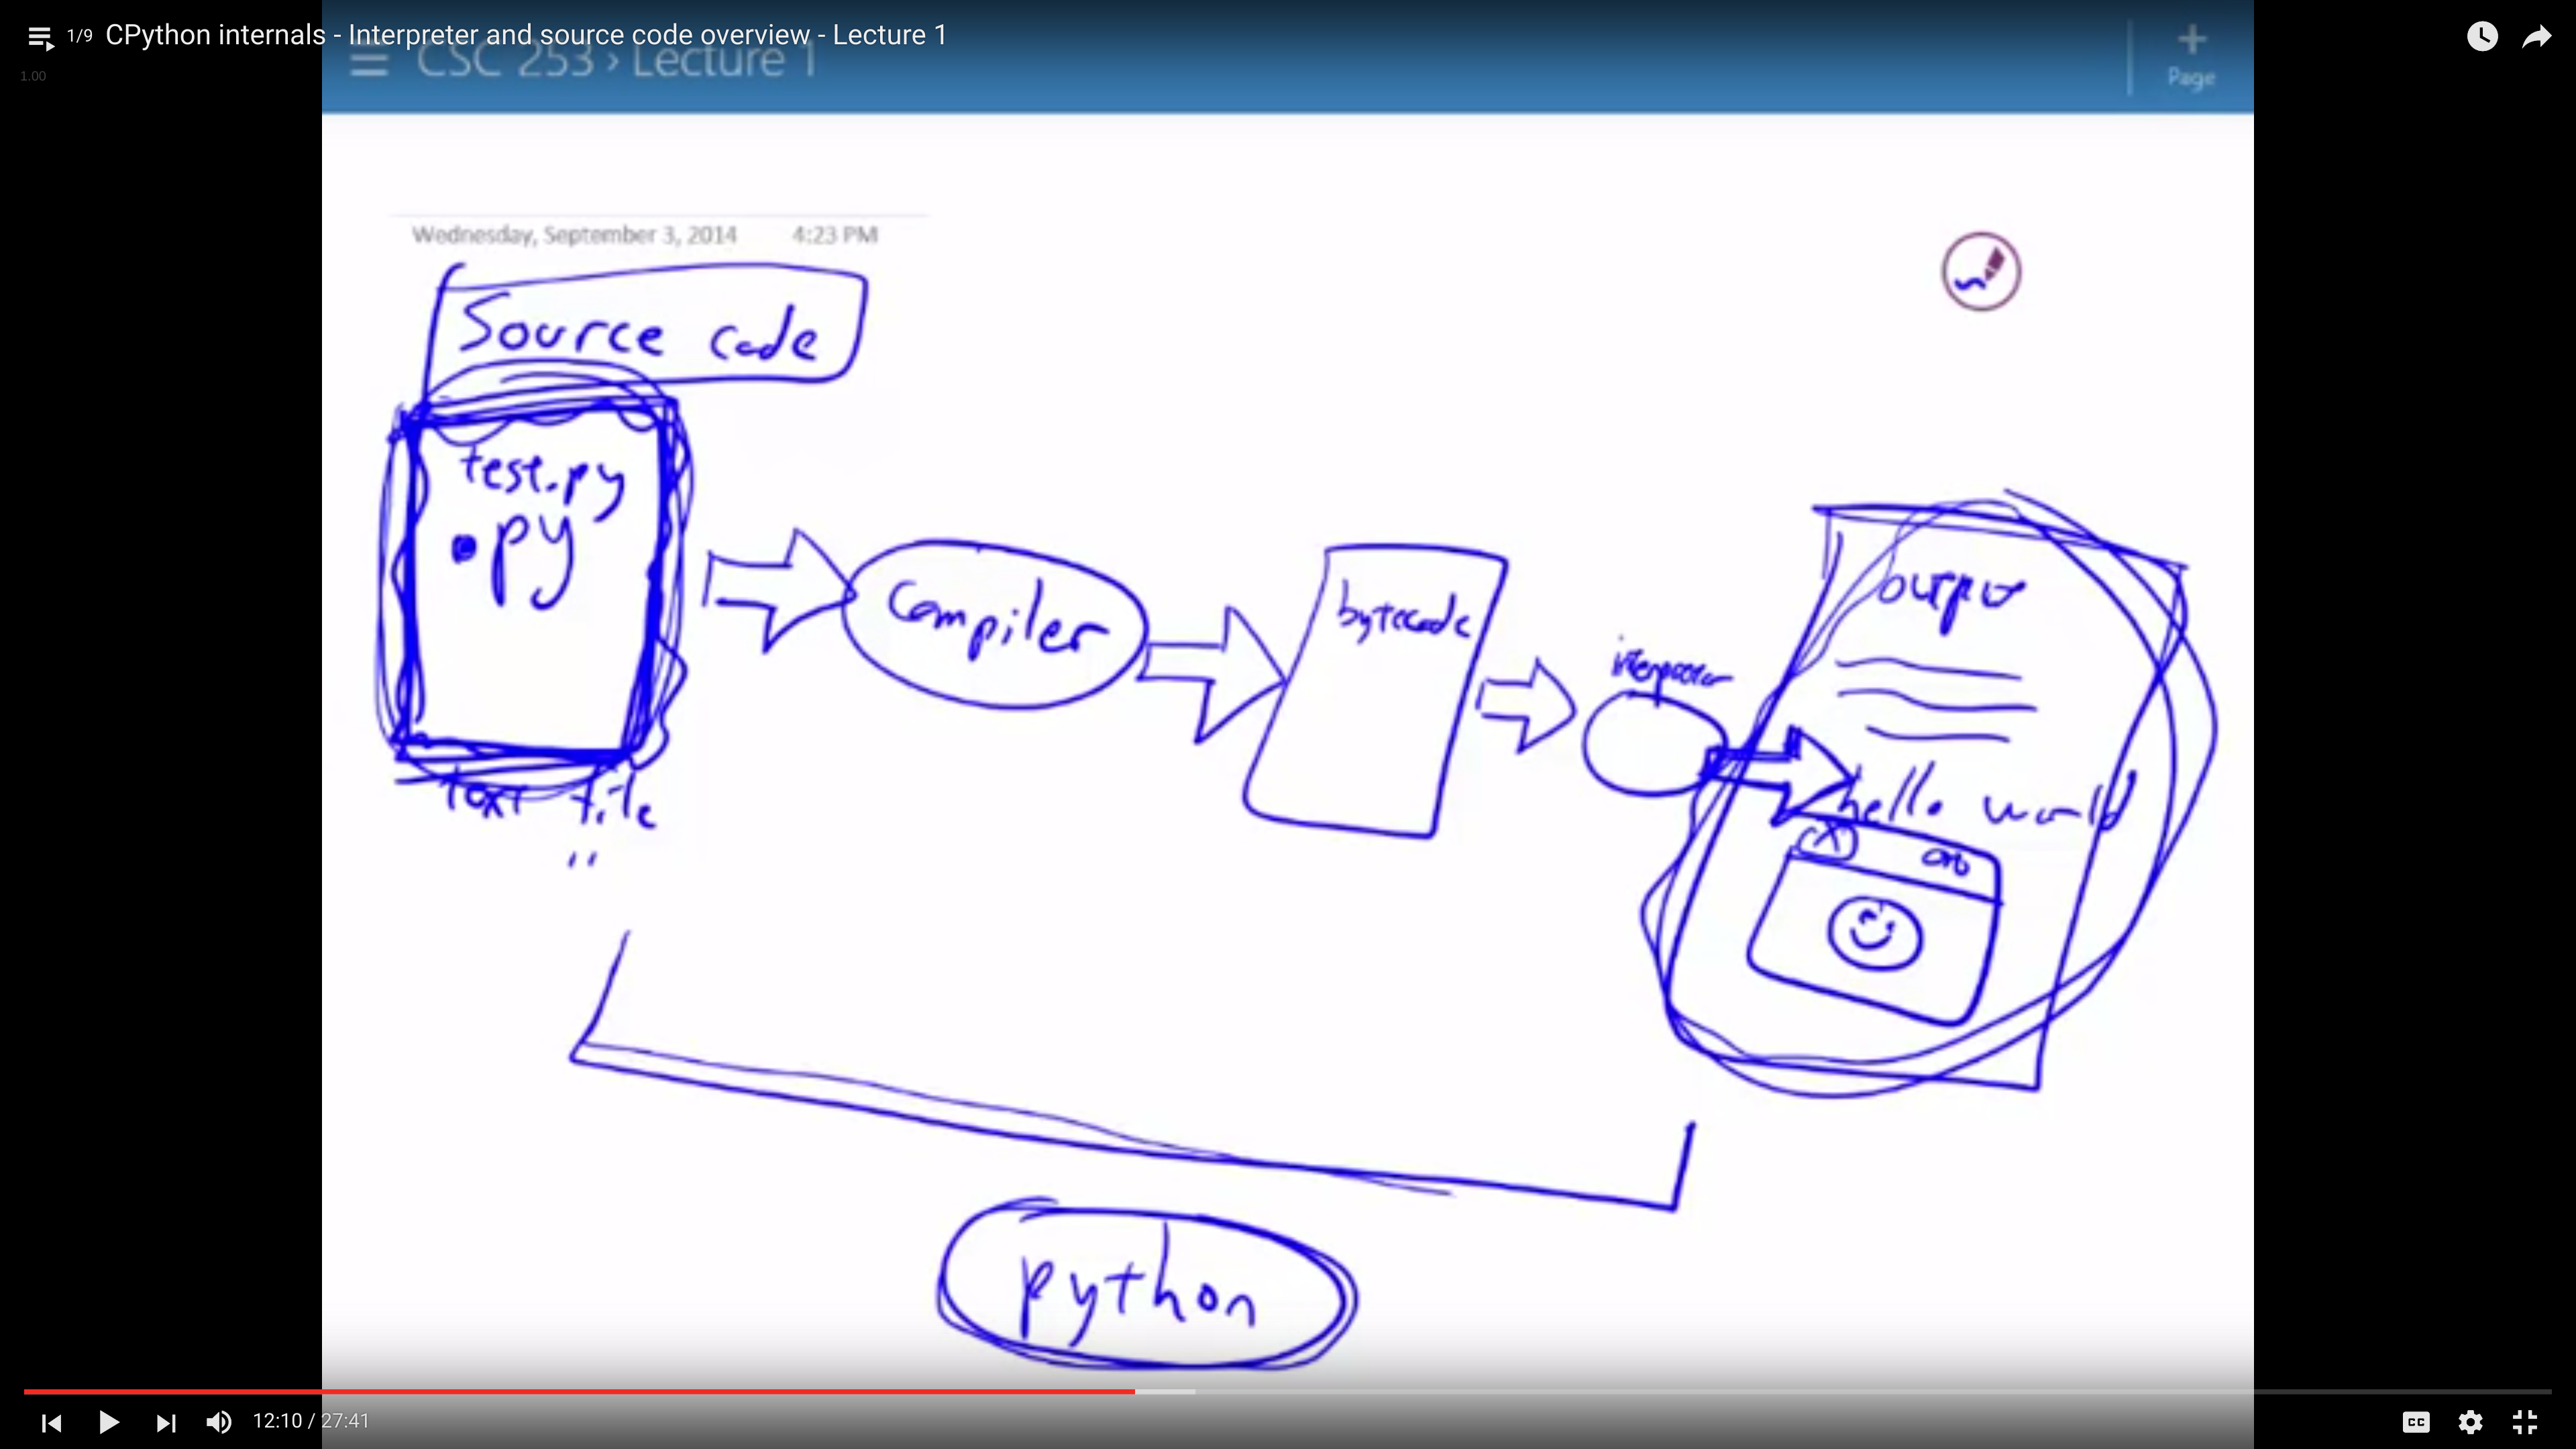 1/9 CPython internals - Interpreter and source code overview - Lecture 1
1.00
CSC 253 › Lecture 1
Page
Wednesday, September 3, 2014 4:23 PM
Source code
test.py
.py
text file
Compiler
bytecode
interpreter
output
hello world
python
12:10 / 27:41
CC